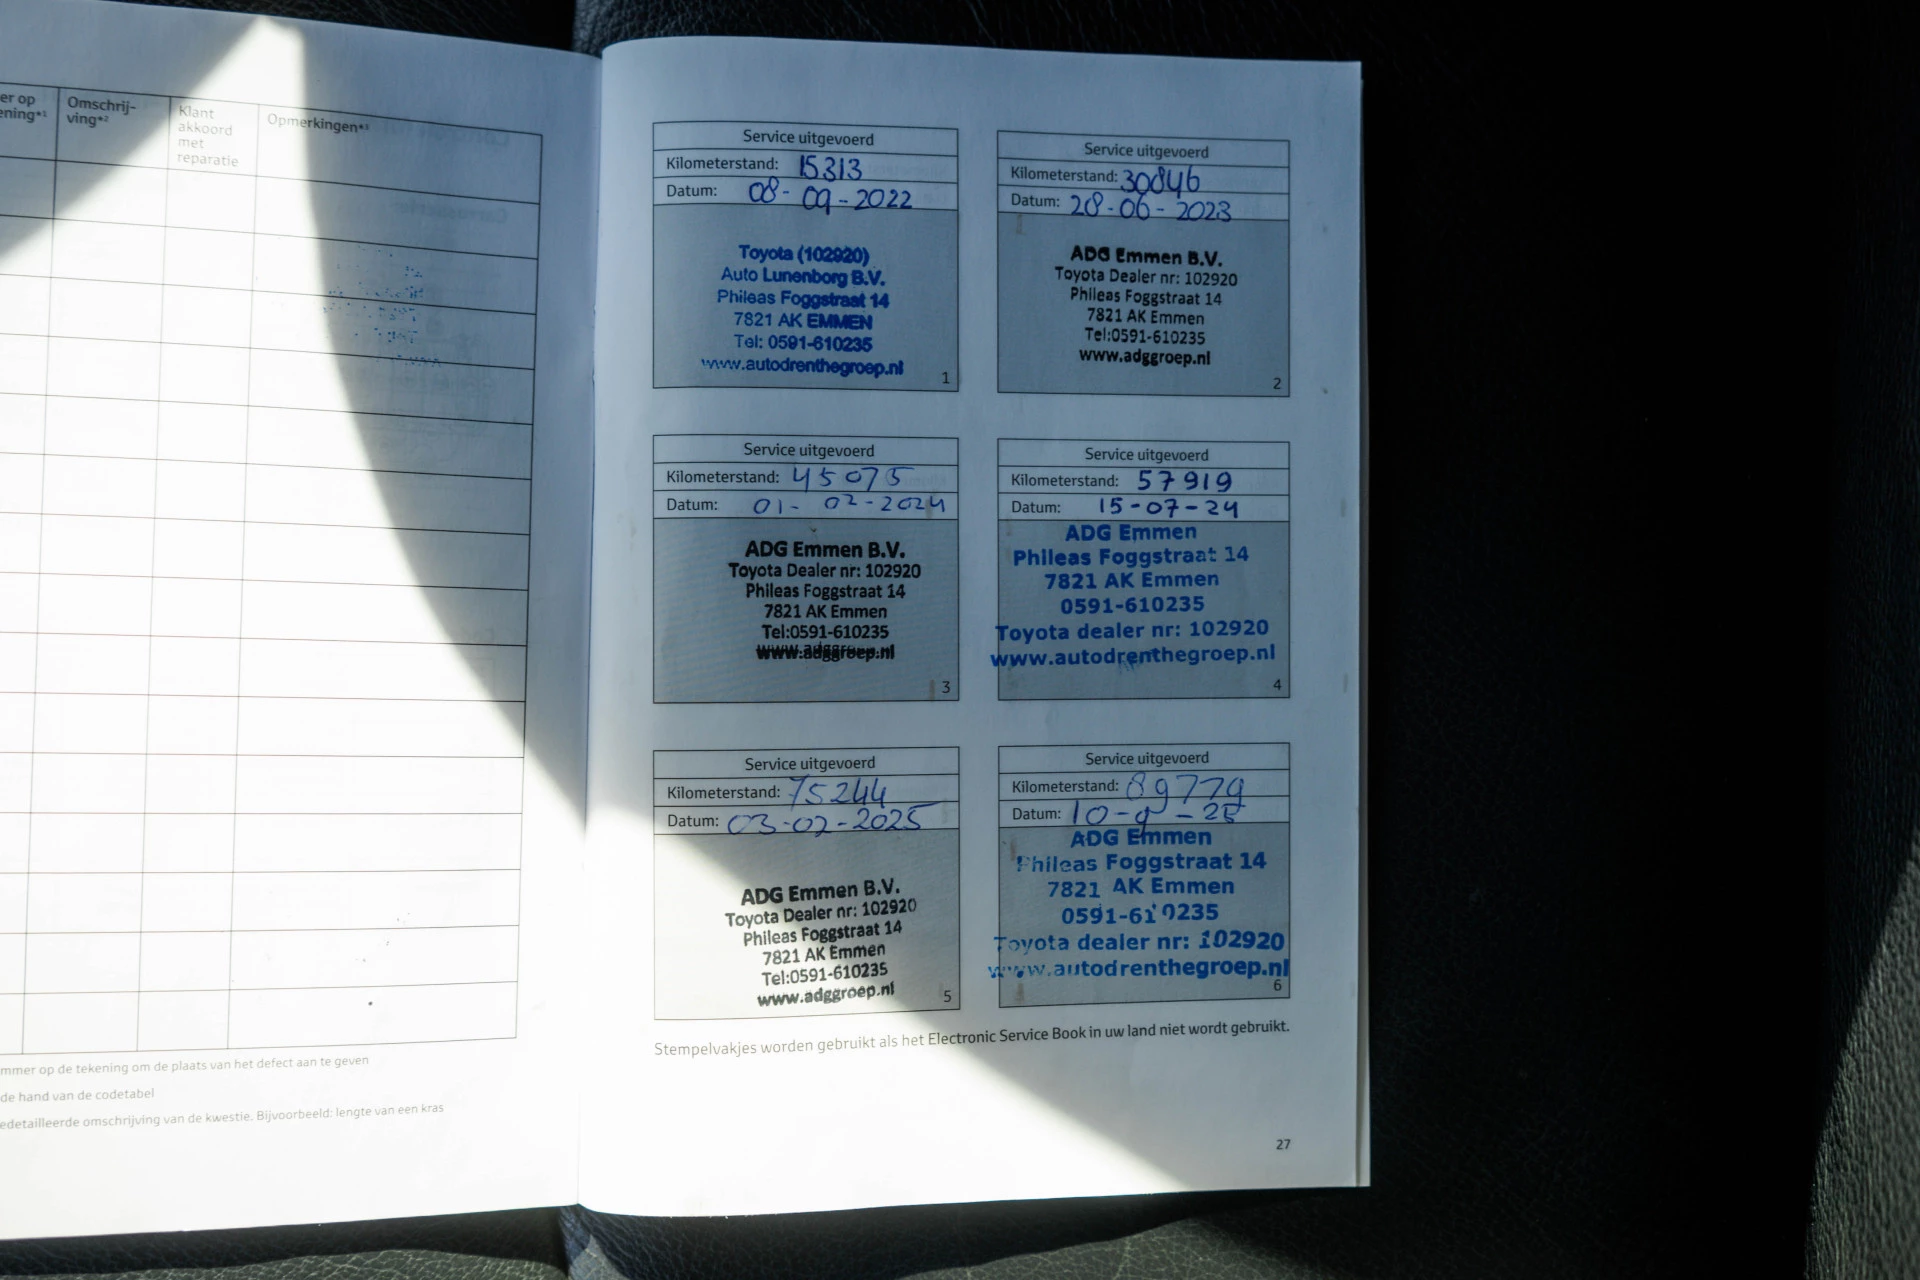 er op
ening*1
Omschrij-
ving*2
Klant
akkoord
met
reparatie
Opmerkingen*3
mmer op de tekening om de plaats van het defect aan te geven
de hand van de codetabel
edetailleerde omschrijving van de kwestie. Bijvoorbeeld: lengte van een kras
Service uitgevoerd
Kilometerstand: 15313
Datum: 08-09-2022
Toyota (102920)
Auto Lunenborg B.V.
Phileas Foggstraat 14
7821 AK EMMEN
Tel: 0591-610235
www.autodrenthegroep.nl
1
Service uitgevoerd
Kilometerstand: 30846
Datum: 28-06-2023
ADG Emmen B.V.
Toyota Dealer nr: 102920
Phileas Foggstraat 14
7821 AK Emmen
Tel:0591-610235
www.adggroep.nl
2
Service uitgevoerd
Kilometerstand: 45075
Datum: 01-02-2024
ADG Emmen B.V.
Toyota Dealer nr: 102920
Phileas Foggstraat 14
7821 AK Emmen
Tel:0591-610235
www.adggroep.nl
3
Service uitgevoerd
Kilometerstand: 57919
Datum: 15-07-24
ADG Emmen
Phileas Foggstraat 14
7821 AK Emmen
0591-610235
Toyota dealer nr: 102920
www.autodrenthegroep.nl
4
Service uitgevoerd
Kilometerstand: 75244
Datum: 03-02-2025
ADG Emmen B.V.
Toyota Dealer nr: 102920
Phileas Foggstraat 14
7821 AK Emmen
Tel:0591-610235
www.adggroep.nl
5
Service uitgevoerd
Kilometerstand: 89779
Datum: 10-9-25
ADG Emmen
Phileas Foggstraat 14
7821 AK Emmen
0591-610235
Toyota dealer nr: 102920
www.autodrenthegroep.nl
6
Stempelvakjes worden gebruikt als het Electronic Service Book in uw land niet wordt gebruikt.
27